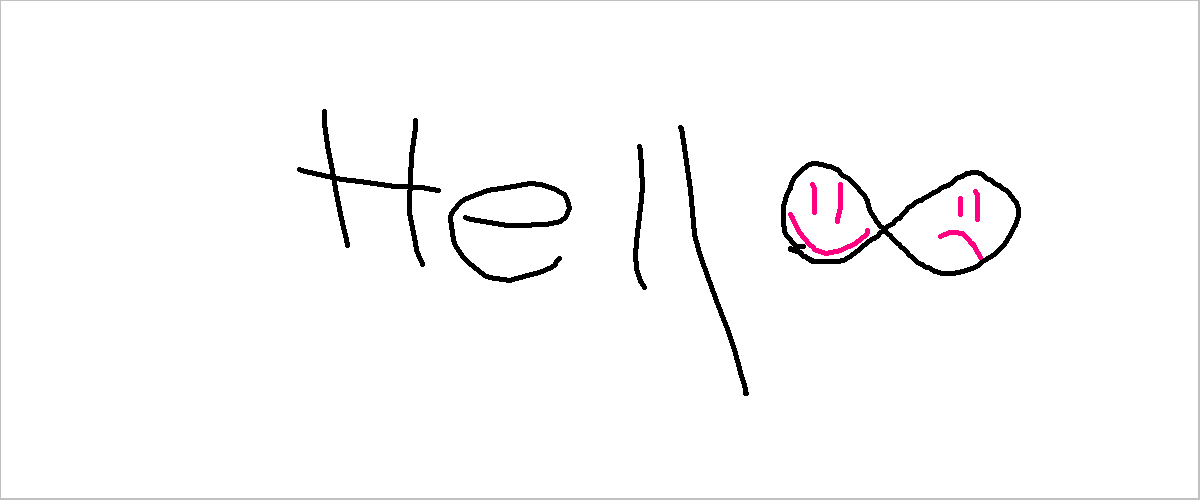 Hell∞